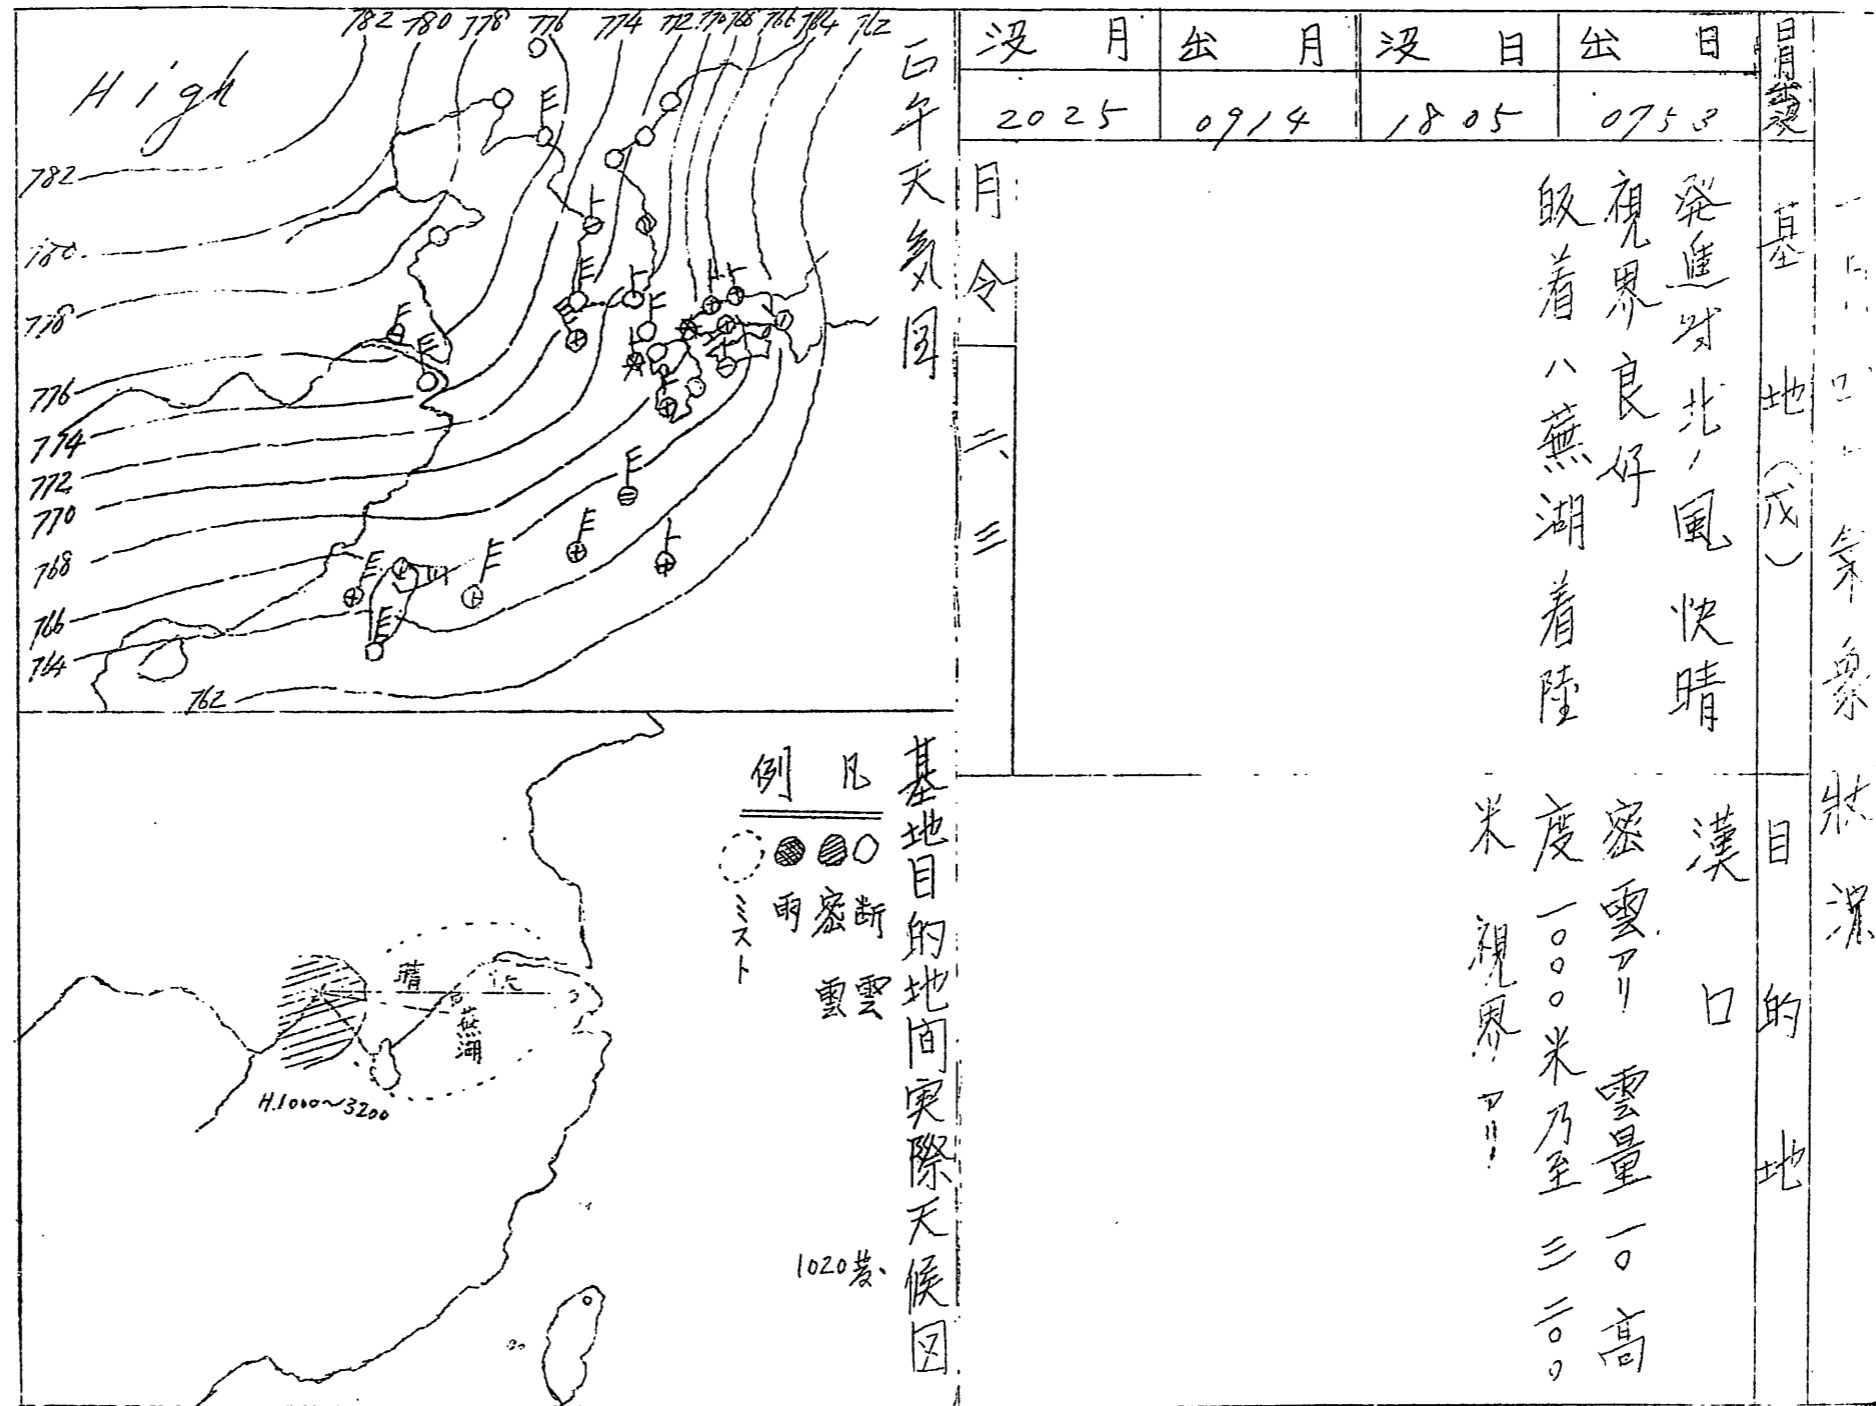 気象状況
日月出没
日出
0753
日没
1805
月出
0914
月没
2025
基地(戊)
発進時北ノ風 快晴
視界良好
皈着ハ蕪湖着陸
月令
二、三
目的地
漢口
密雲アリ 雲量一〇 高
度一〇〇〇米乃至三二〇〇
米 視界アリ
正午天気図
High
782 780 778 776 774 772 770 768 766 764 762
782
780
778
776
774
772
770
768
766
764
762
基地目的地間実際天候図
凡例
断雲
密雲
雨
ミスト
晴
蕪湖
H.1000~3200
1020発、